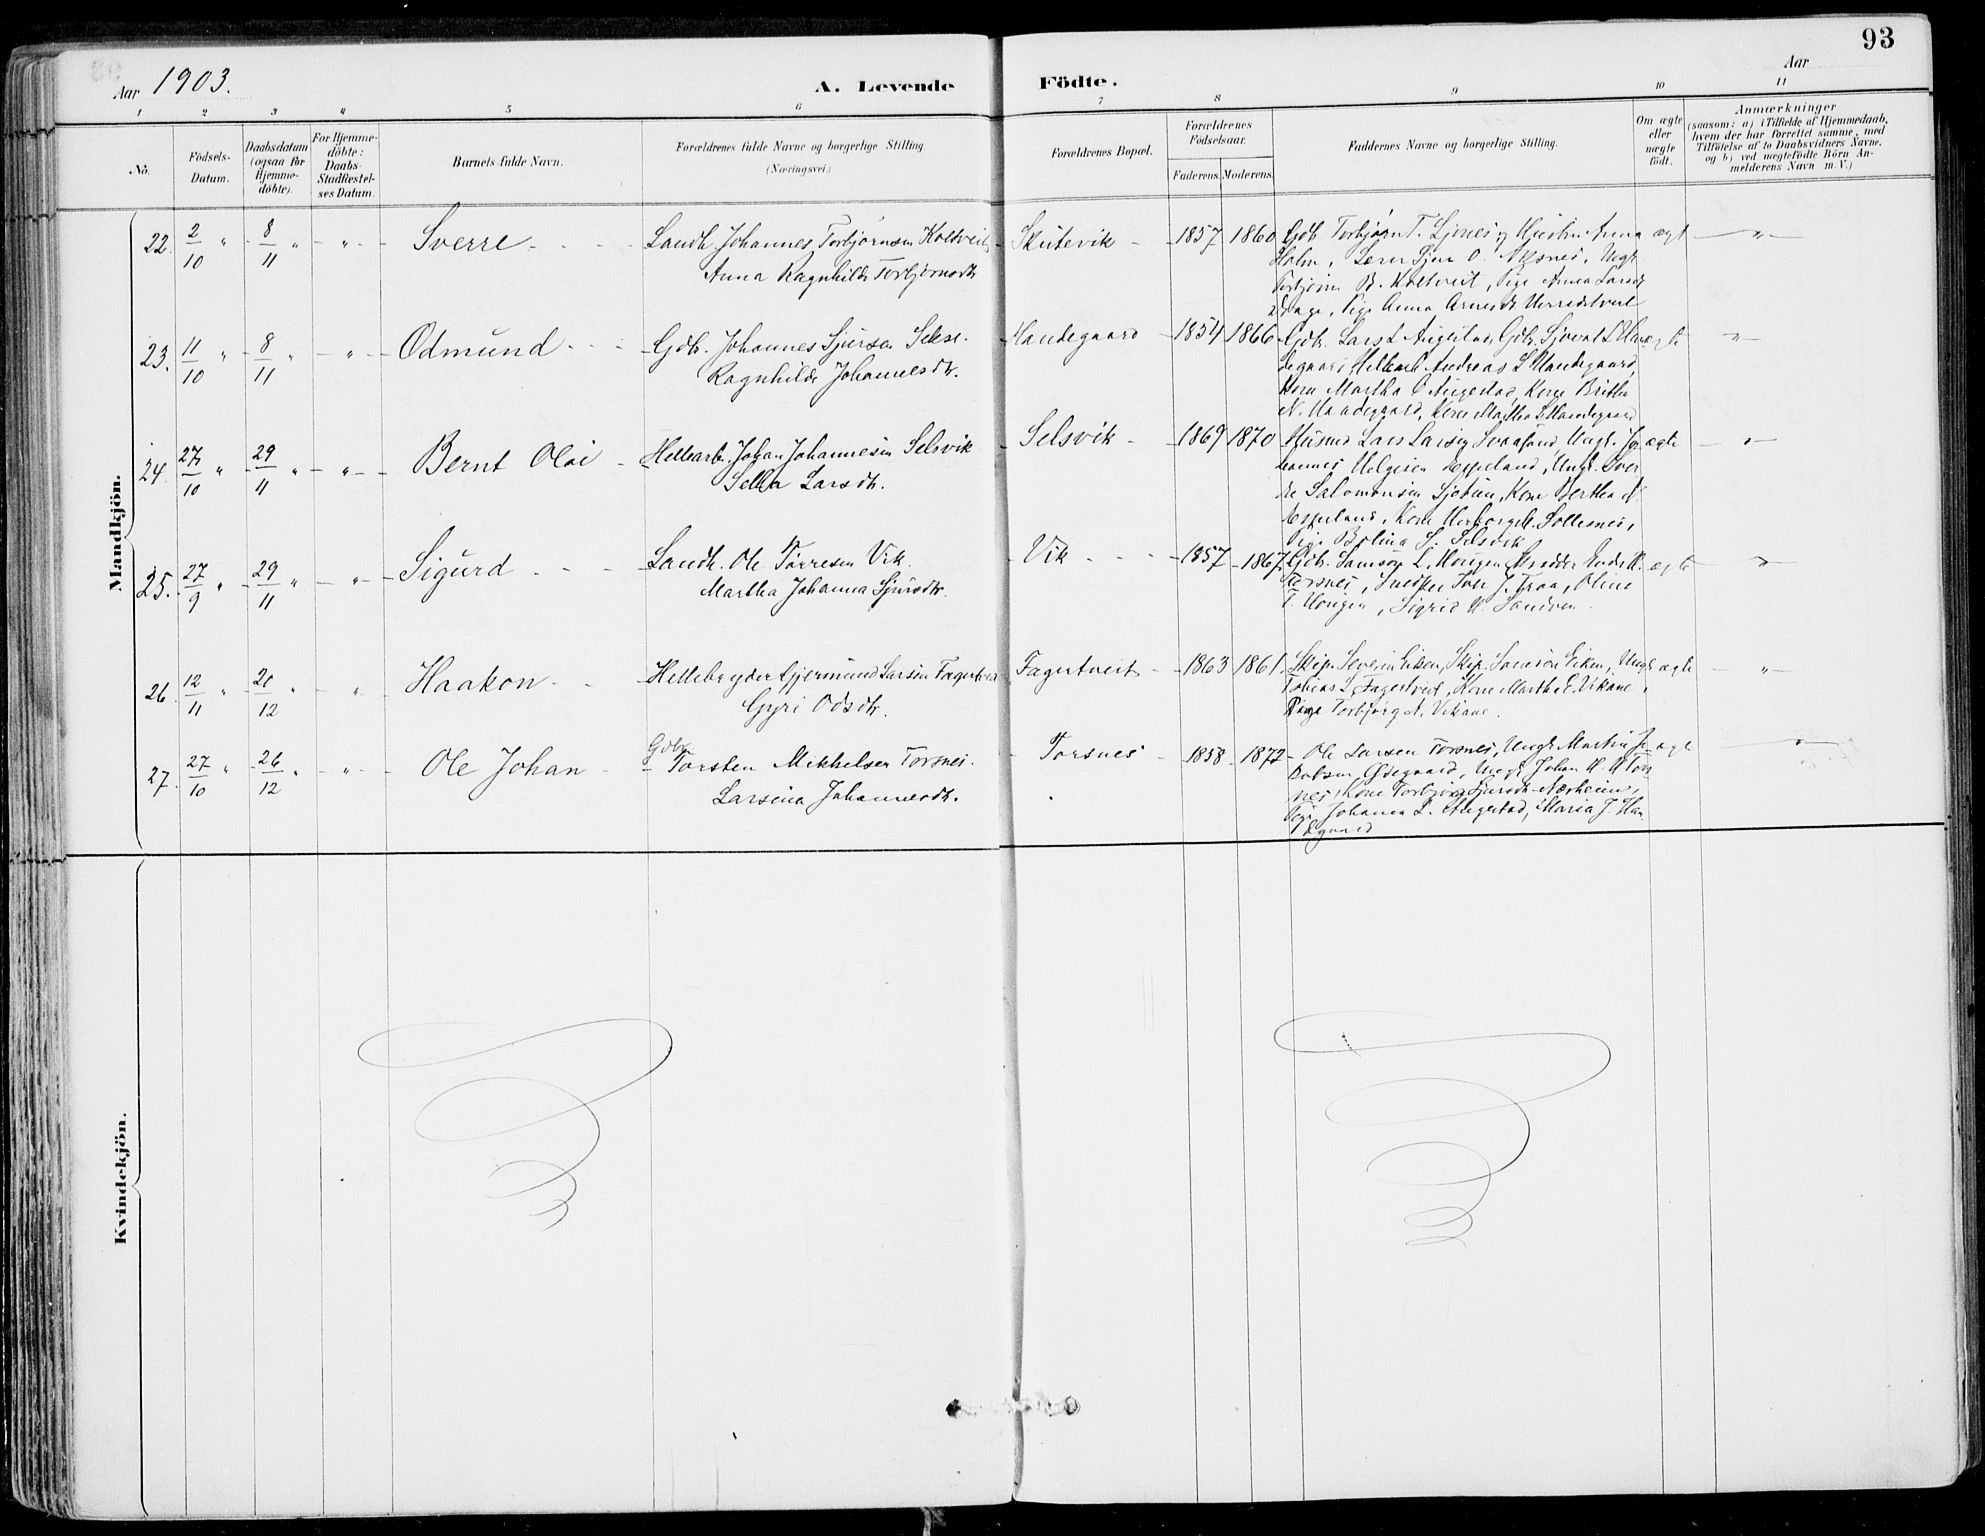 93
Aar 1903.
A. Levende Födte.
Aar
1 2 3 4 5 6 7 8 9 10 11
No.
Födsels-Datum.
Daabsdatum (ogsaa for Hjemme-döbte).
For Hjemme-döbte: Daabs-Stadfæstel-ses Datum.
Barnets fulde Navn.
Forældrenes fulde Navne og borgerlige Stilling.
(Næringsvei.)
Forældrenes Bopæl.
Forældrenes Födselsaar.
Faderens. Moderens.
Faddernes Navne og borgerlige Stilling.
Om ægte eller uægte födt.
Anmærkninger
(saasom: a) i Tilfælde af Hjemmedaab,
hvem der har forrettet samme, med
Tilföielse af to Daabsvidners Navne,
og b) ved uægtefödte Börn An-
melderens Navn m. V.)
Mandkjön.
22. 2/10 " - 8/11 " - " - Sverre - Landh. Johannes Torbjørnsen Koltveit
Anna Ragnhilde Torbjørnsdtr.
Skutevik - 1857 1860
Gdb. Torbjørn T. Ljones, Anna ægt - " -
Holm, Lærer O. Axnes, Ungk.
Torbjørn B. Koltveit, Pige Anna Larsdtr
Pige Anna Arnesdtr
23. 11/10 " - 8/11 " - " - Odmund - Gdb. Johannes Sjursen Sekse.
Ragnhilde Johannesdtr.
Handegaard - 1854 1866
Gdb. Lars L Augestad, Gdb. Sjovat L Han ægte "
degaard, Andreas L Handegaard,
Kone Martha O Augestad, Kone Britha
N. Handegaard, Kone Martha Handegaard
24. 27/10 " - 29/11 " - " - Bernt Olai - Hellearb. Johan Johannessen Selsvik
Sella Larsdtr.
Selsvik - 1869 1870
Husmd Lars Larsen Ungk. Jo ægte - " -
hannes Helgesen Espeland, Ungk. Sver
re Salomonsen, Kone Bertha N
Espeland, Kone Solesnes,
Pige Bolina J. Selsvik
25. 27/9 " - 29/11 " - " - Sigurd - Landh. Ole Tørresen Vik.
Martha Johanna Sjursdtr.
Vik - 1857 - 1867
Gdb. Samson L. Hougen, Skrædder Endre H. ægte "
Torsnes, Snedker Iver J. Traa, Oline
T. Hougen, Sigrid H. Sandven
26. 12/11 " - 20/12 " " Haakon - Hellebryder Gjermund Larsen Fagertveit
Gyri Odsdtr.
Fagertveit - 1863 1861
Skip. Severin Eiken, Skip. Samson Eiken, Ungk ægte - " -
Tobias L. Fagertveit, Kone Martha E. Vikane,
Pige Torbjørg N. Vikane.
27. 27/10 " - 26/12 " - " - Ole Johan - Gdbr.
Torsten Mikkelsen Torsnes.
Larsina Johannesdtr.
Torsnes - 1858 - 1872
Ole Larsen Torsnes, Ungk. Martin Ja ægt "
kobsen Ødegaard, Ungk Johan H. H Tors
nes, Kone Torbjørg Sjursdtr. Aarheim,
Pige Johanna L. Augestad, Maria J. Han
degaard
Kvindekjön.